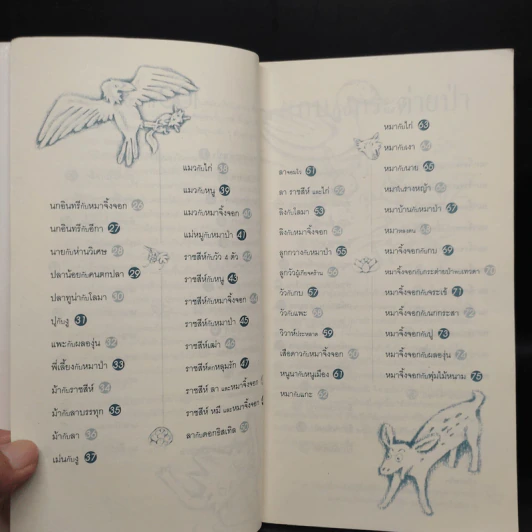 นกอินทรีกับหมาจิ้งจอก 26
นกอินทรีกับอีกา 27
นายกับห่านวิเศษ 28
ปลาน้อยกับคนตกปลา 29
ปลาทูน่ากับโลมา 30
ปูกับงู 31
แพะกับผลองุ่น 32
พี่เลี้ยงกับหมาป่า 33
ม้ากับราชสีห์ 34
ม้ากับลาบรรทุก 35
ม้ากับลา 36
เม่นกับงู 37
แมวกับไก่ 38
แมวกับหนู 39
แมวกับหมาจิ้งจอก 40
แม่หมูกับหมาป่า 41
ราชสีห์กับวัว 4 ตัว 42
ราชสีห์กับหนู 43
ราชสีห์กับหมาจิ้งจอก
ราชสีห์กับหมาป่า 45
ราชสีห์เฒ่า 46
ราชสีห์ตกหลุมรัก 47
ราชสีห์ ลา และหมาจิ้งจอก
ราชสีห์ หมี และหมาจิ้งจอก
ลากับดอกธิสเทิล
51
ลา ราชสีห์ และไก่ 52
ลิงกับโลมา 53
ลิงกับหมาจิ้งจอก 54
ลูกกวางกับหมาป่า 55
ลูกวัวผู้เกียจคร้าน 56
วัวกับกบ 57
วัวกับแพะ 58
วิวาห์ประหลาด 59
เสือดาวกับหมาจิ้งจอก 60
หนูนากับหนูเมือง 61
หมากับแกะ 62
หมากับไก่ 63
หมากับเงา 64
หมากับนาย 65
หมากับรางหญ้า 66
หมาบ้านกับหมาป่า 67
หมาหลงตน 68
หมาจิ้งจอกกับกบ 69
หมาจิ้งจอกกับกระต่ายป่า 70
หมาจิ้งจอกกับจระเข้ 71
หมาจิ้งจอกกับนกกระสา 72
หมาจิ้งจอกกับปู 73
หมาจิ้งจอกกับผลองุ่น 74
หมาจิ้งจอกกับพุ่มไม้หนาม 75